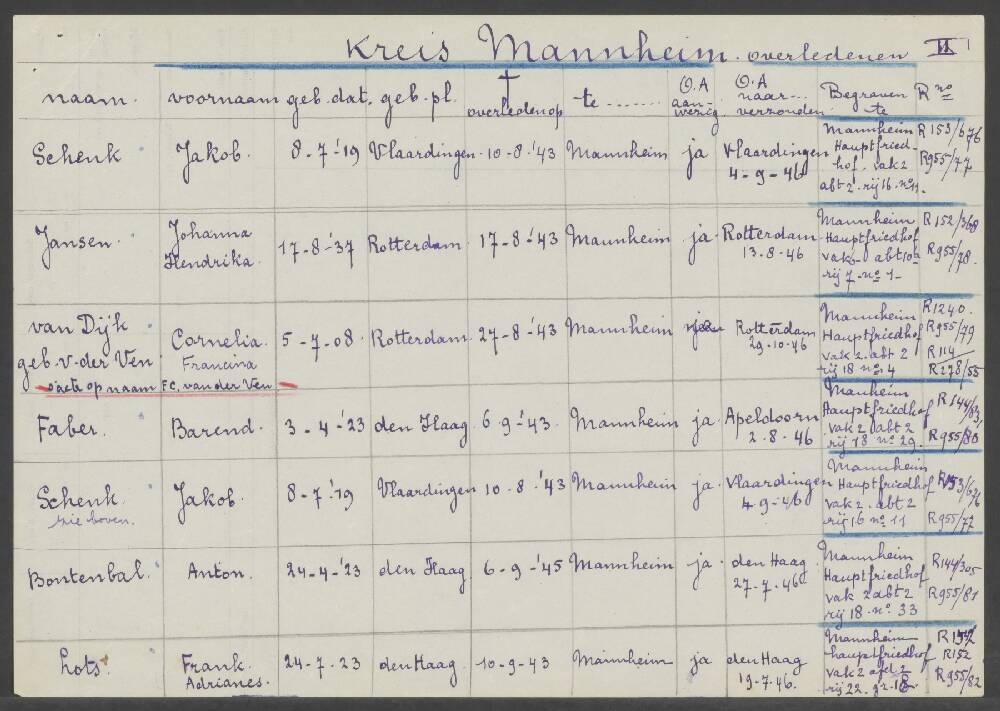 Kreis Mannheim. overledenen VI
naam. voornaam geb. dat. geb. pl. † overleden op te ....... O.A aanwezig O.A naar... verzonden Begraven te R no
Schenk Jakob. 8-7-'19 Vlaardingen 10-8-'43 Mannheim ja Vlaardingen 4-9-46 Mannheim Hauptfriedhof. vak 2 abt 2. rij 16. no 11. R153/676 R955/77
Jansen. Johanna Hendrika. 17-8-'37 Rotterdam 17-8-'43 Mannheim ja Rotterdam 13.8-46 Mannheim Hauptfriedhof vak abt rij 7 no 1 R152/368 R955/78.
van Dijk geb. v. der Ven Cornelia. Francina 5-7-08 Rotterdam 27-8-'43 Mannheim Rotterdam 29-10-46 Mannheim Hauptfriedhof vak 2. abt 2 rij 18 no. 4 R1240. R955/79 R114 R278/55
acte op naam F.C. van der Ven
Faber. Barend. 3-4-'23 den Haag 6-9-'43. Mannheim ja. Apeldoorn 2.8.46 Mannheim Hauptfriedhof vak 2 abt 2 rij 18 no 29. R144/83 R955/80
Schenk. Jakob. 8-7-'19 Vlaardingen 10-8-'43 Mannheim ja. Vlaardingen 4-9-46 Mannheim Hauptfriedhof vak 2. abt 2 rij 16 no 11 R153/676 R955/77
zie boven.
Bontenbal. Anton. 24-4-'23 den Haag 6-9-'45 Mannheim ja. den Haag 27-7-46 Mannheim Hauptfriedhof vak 2 abt 2 rij 18 no. 33 R144/305 R955/81
Lots Frank. Adrianes. 24-7-23 den Haag 10-9-43 Mannheim ja den Haag 19-7-46. Mannheim hauptfriedhof vak 2 afd 2 rij 22. R152 R955/82